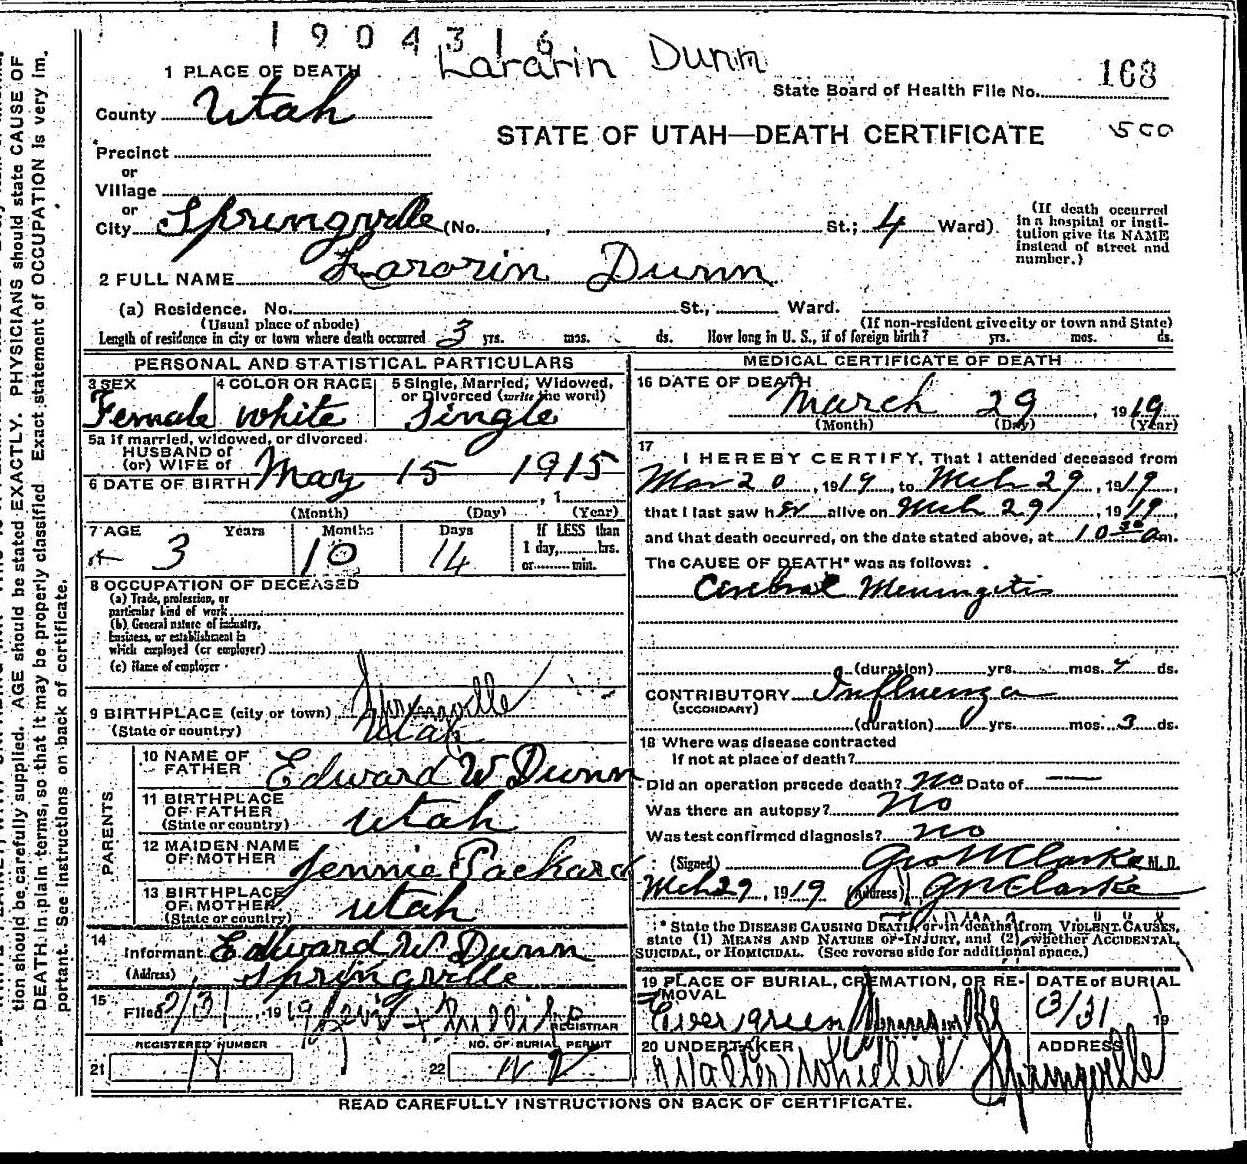 1904316
Lararin Dunn
168
1 PLACE OF DEATH
State Board of Health File No.
County Utah
STATE OF UTAH—DEATH CERTIFICATE
500
Precinct
or
Village
or
City Springville (No. , St.; 4 Ward)
(If death occurred in a hospital or institution give its NAME instead of street and number.)
2 FULL NAME Lararin Dunn
(a) Residence. No. St., Ward.
(Usual place of abode) (If non-resident give city or town and State)
Length of residence in city or town where death occurred 3 yrs. mos. ds. How long in U. S., if of foreign birth? yrs. mos. ds.
PERSONAL AND STATISTICAL PARTICULARS
3 SEX Female
4 COLOR OR RACE white
5 Single, Married, Widowed, or Divorced (write the word) Single
5a If married, widowed, or divorced
HUSBAND of
(or) WIFE of
6 DATE OF BIRTH May 15 1915
, 1
(Month) (Day) (Year)
7 AGE Years Months Days If LESS than
3 10 14 1 day, hrs.
or min.
8 OCCUPATION OF DECEASED
(a) Trade, profession, or
particular kind of work
(b) General nature of industry,
business, or establishment in
which employed (or employer)
(c) Name of employer
9 BIRTHPLACE (city or town) Springville
(State or country) Utah
PARENTS
10 NAME OF FATHER Edward W Dunn
11 BIRTHPLACE OF FATHER (State or country) Utah
12 MAIDEN NAME OF MOTHER Jennie Packard
13 BIRTHPLACE OF MOTHER (State or country) Utah
14 Informant Edward W Dunn
(Address) Springville
15 Filed 3/31, 1919
REGISTRAR
REGISTERED NUMBER NO. OF BURIAL PERMIT
21 22
MEDICAL CERTIFICATE OF DEATH
16 DATE OF DEATH
March 29, 1919
(Month) (Day) (Year)
17 I HEREBY CERTIFY, That I attended deceased from
Mar 20, 1919, to Mch 29, 1919,
that I last saw her alive on Mch 29, 1919,
and that death occurred, on the date stated above, at 10 30 a m.
The CAUSE OF DEATH* was as follows:
Cerebral Meningitis
(duration) yrs. mos. ds.
CONTRIBUTORY Influenza
(SECONDARY)
(duration) yrs. mos. 3 ds.
18 Where was disease contracted
if not at place of death?
Did an operation precede death? No Date of —
Was there an autopsy? No
Was test confirmed diagnosis? no
(Signed) Geo N Clarke M.D.
Mch 29, 1919 (Address) G N Clarke
* State the DISEASE CAUSING DEATH, or in deaths from VIOLENT CAUSES,
state (1) MEANS AND NATURE OF INJURY, and (2) whether ACCIDENTAL,
SUICIDAL, or HOMICIDAL. (See reverse side for additional space.)
19 PLACE OF BURIAL, CREMATION, OR REMOVAL DATE of BURIAL
Evergreen Springville 3/31 19
20 UNDERTAKER ADDRESS
Walter Wheeler Springville
READ CAREFULLY INSTRUCTIONS ON BACK OF CERTIFICATE.
tion should be carefully supplied. AGE should be stated EXACTLY. PHYSICIANS should state CAUSE OF
DEATH in plain terms, so that it may be properly classified. Exact statement of OCCUPATION is very im-
portant. See instructions on back of certificate.